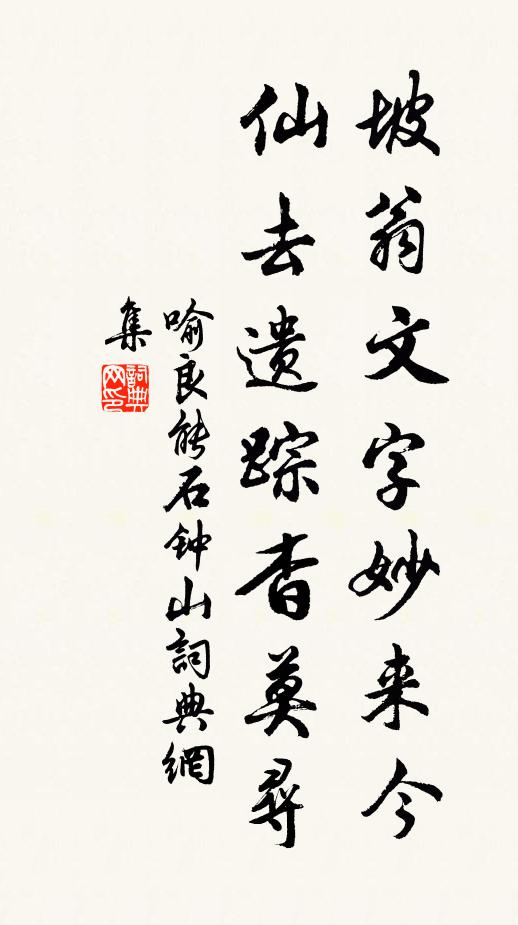 坡翁文字妙来今
仙去遗踪杳莫尋
喻良能石钟山詞典網
集
詞典
网印